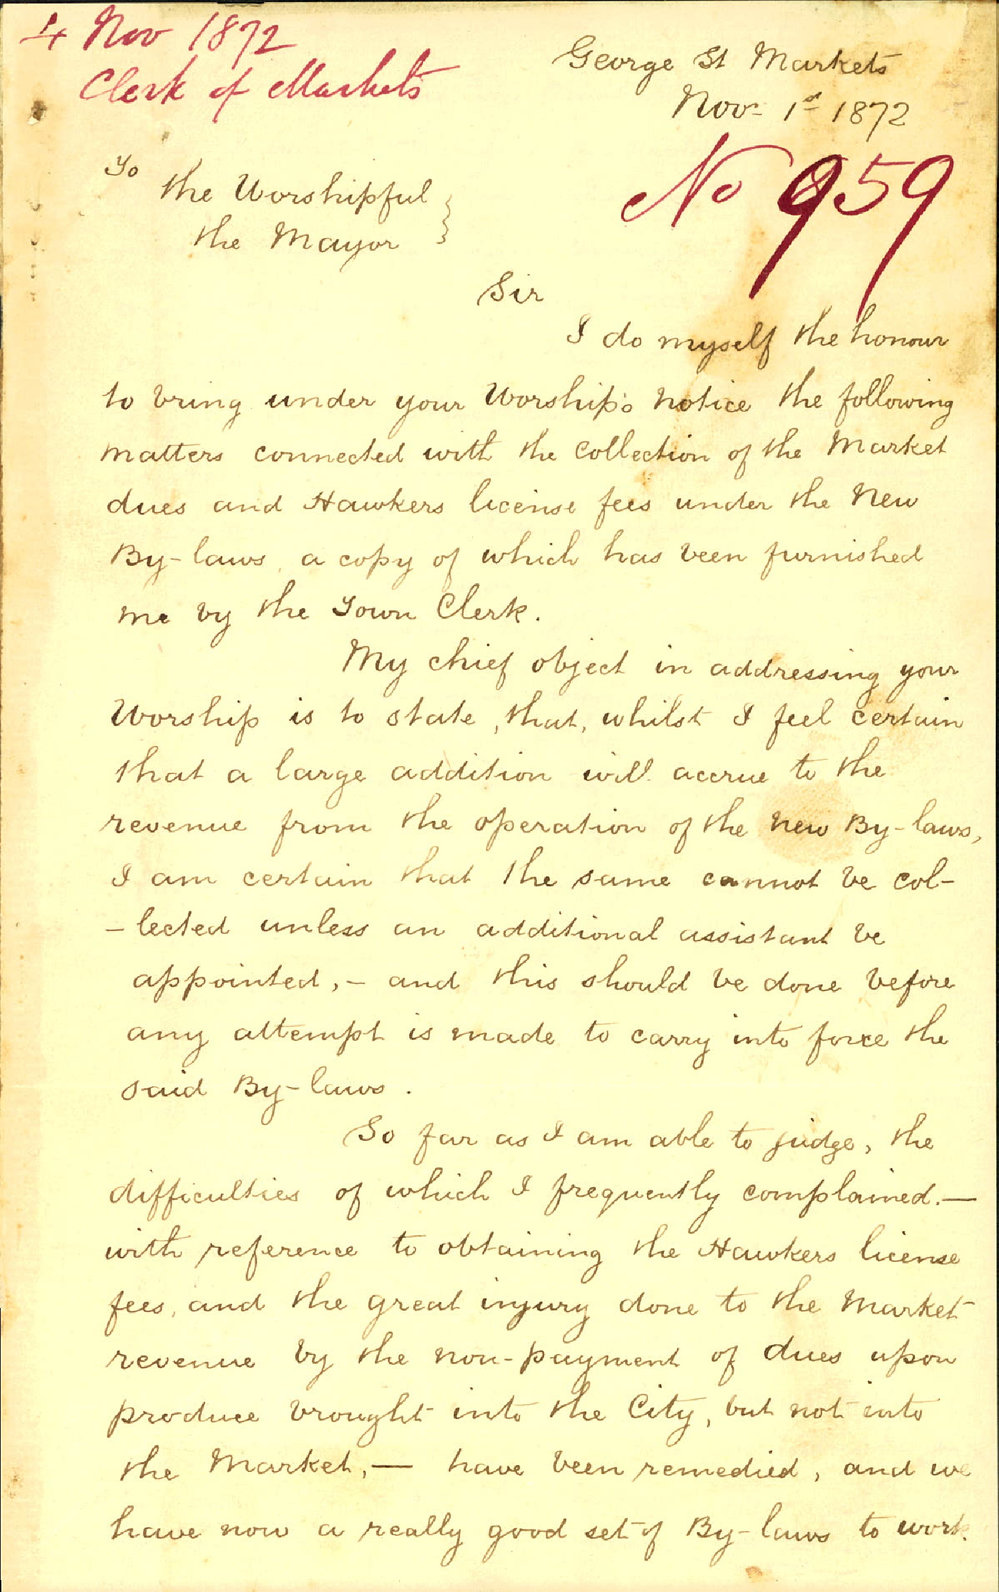 4 Nov 1872
Clerk of Markets
George St Markets
Nov. 1st 1872
No 959
To the Worshipful
the Mayor
Sir
I do myself the honour
to bring under your Worship's notice the following
matters connected with the collection of the Market
dues and Hawkers license fees under the New
By-laws, a copy of which has been furnished
me by the Town Clerk.
My chief object in addressing your
Worship is to state, that, whilst I feel certain
that a large addition will accrue to the
revenue from the operation of the new By-laws,
I am certain that the same cannot be col-
-lected unless an additional assistant be
appointed, - and this should be done before
any attempt is made to carry into force the
said By-laws.
So far as I am able to judge, the
difficulties of which I frequently complained. —
with reference to obtaining the Hawkers license
fees, and the great injury done to the Market
revenue by the non-payment of dues upon
produce brought into the City, but not into
the Market, — have been remedied, and we
have now a really good set of By-laws to work